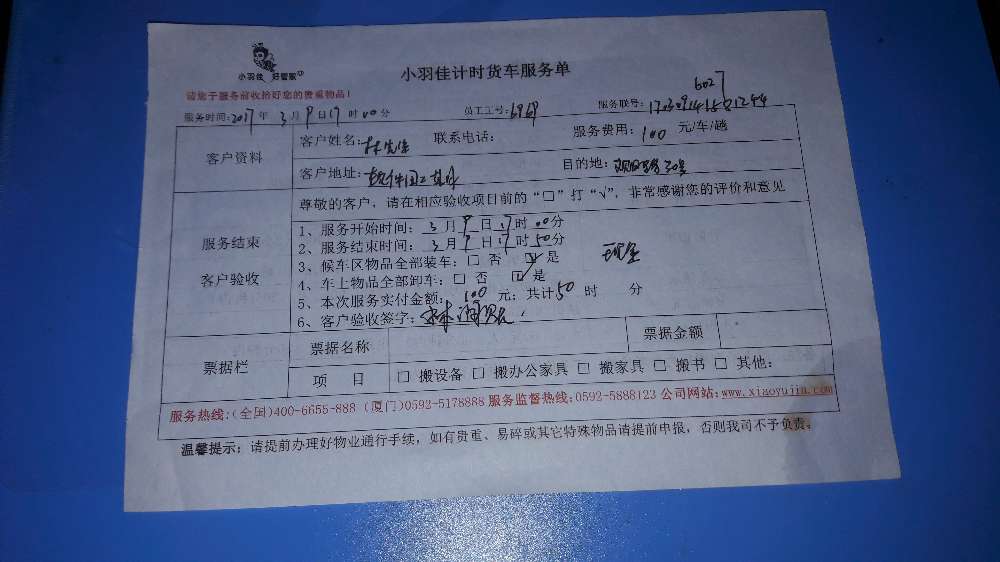 小羽佳 好管家
小羽佳计时货车服务单
请您于服务前收拾好您的贵重物品！
6027
服务时间：2017 年 3 月 9 日 17 时 00 分 员工工号：6969 服务联号：
客户资料
客户姓名：林先生 联系电话： 服务费用：100 元/车/趟
客户地址：软件园二期 目的地：
服务结束
客户验收
尊敬的客户，请在相应验收项目前的“□”打“√”，非常感谢您的评价和意见
1、服务开始时间：3 月 9 日 17 时 00 分
2、服务结束时间：3 月 9 日 17 时 50 分
3、候车区物品全部装车：□ 否 ☑ 是 现金
4、车上物品全部卸车：□ 否 ☑ 是
5、本次服务实付金额：100 元；共计 50 时 分
6、客户验收签字：
票据栏
票据名称 票据金额
项 目 □ 搬设备 □ 搬办公家具 □ 搬家具 □ 搬书 □ 其他：
服务热线：(全国)400-6655-888 (厦门)0592-5178888 服务监督热线：0592-5888123 公司网站：www.xiaoyujia.com
温馨提示：请提前办理好物业通行手续，如有贵重、易碎或其它特殊物品请提前申报，否则我司不予负责。